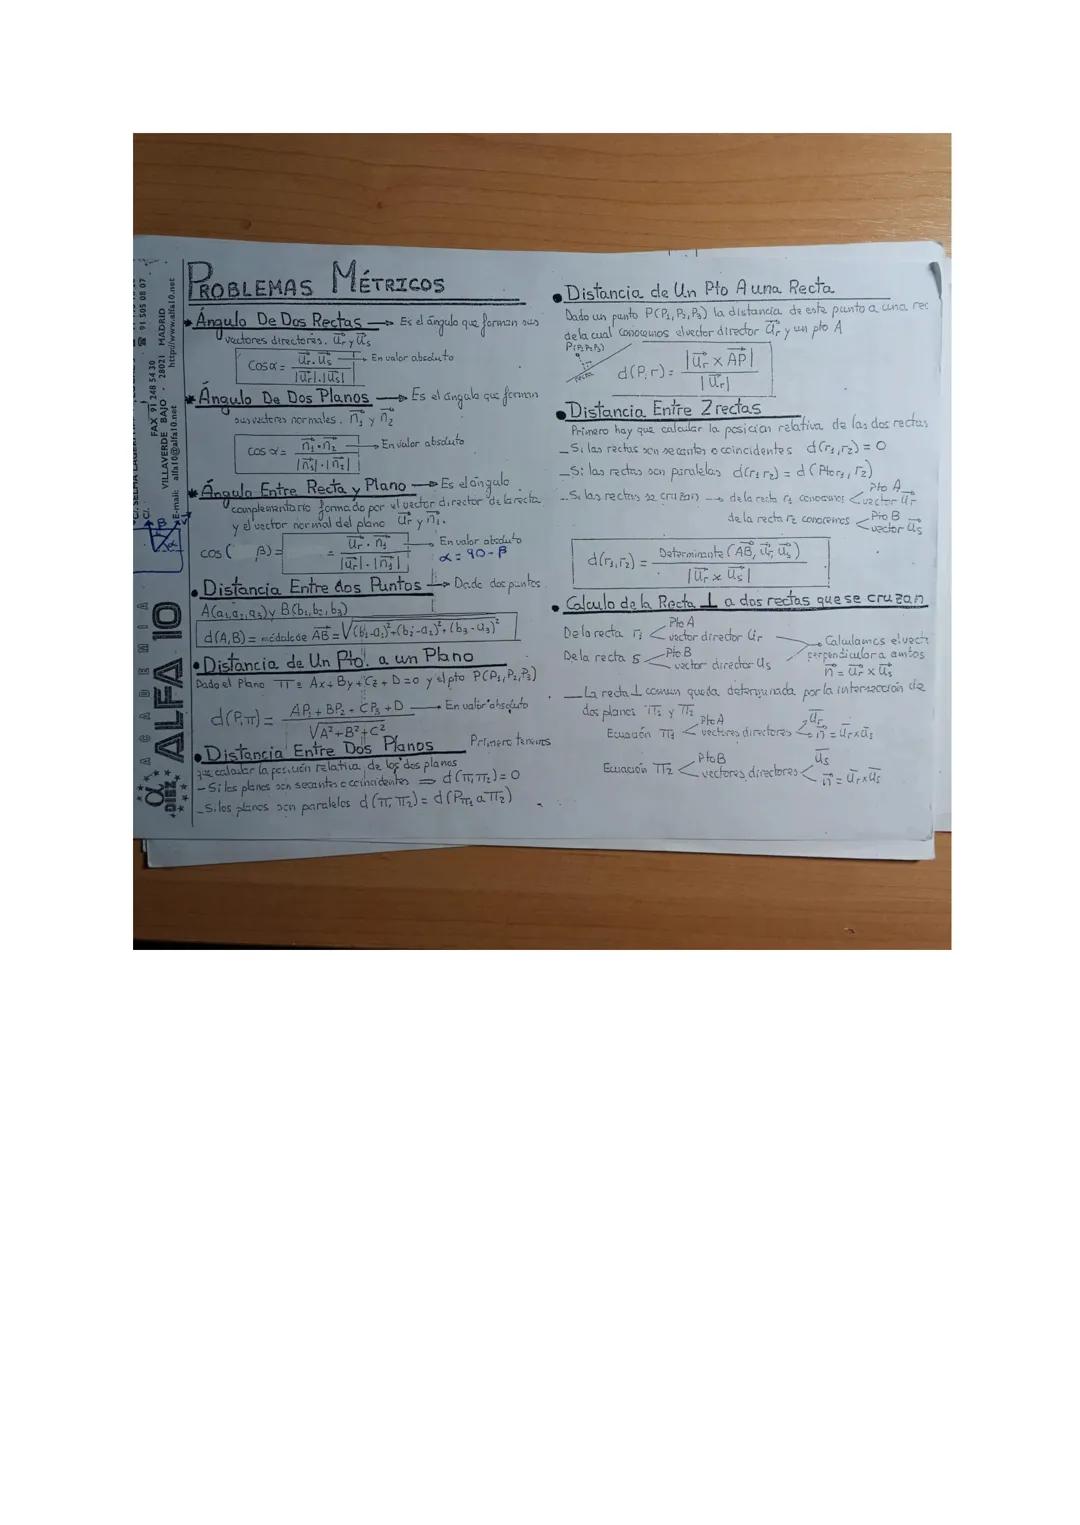 PROBLEMAS MÉTRICOS
* Ángulo De Dos Rectas → Es el ángulo que forman sus
vectores directores. u⃗r y u⃗s
Cos α = u⃗r . u⃗s / |u⃗r|.|u⃗s| → En valor absoluto
* Ángulo De Dos Planos → Es el ángulo que forman
sus vectores normales. n⃗1 y n⃗2
cos α = n⃗1 · n⃗2 / |n⃗1|·|n⃗2| → En valor absoluto
* Ángulo Entre Recta y Plano → Es el ángulo
complementario formado por el vector director de la recta
y el vector normal del plano u⃗r y n⃗1.
cos ( β) = = u⃗r . n⃗1 / |u⃗r|·|n⃗1| → En valor absoluto
α = 90 - β
• Distancia Entre dos Puntos → Dado dos puntos
A(a1,a2,a3) y B(b1,b2,b3)
d(A,B) = módulo de AB⃗ = √(b1-a1)²+(b2-a2)²+(b3-a3)²
• Distancia de Un Pto. a un Plano
Dado el Plano π ≡ Ax+By+Cz+D=0 y el pto P(P1,P2,P3)
d(P,π) = AP1+BP2+CP3+D / √A²+B²+C² → En valor absoluto
• Distancia Entre Dos Planos Primero tenemos
que calcular la posición relativa de los dos planos
- Si los planos son secantes o coincidentes ⇒ d(π1,π2)=0
- Si los planos son paralelos d(π1,π2) = d(Pπ1 a π2)
• Distancia de Un Pto A una Recta
Dado un punto P(P1,P2,P3) la distancia de este punto a una rec
de la cual conocemos el vector director u⃗r y un pto A
P(P1P2P3)
d(P,r) = |u⃗r × AP⃗| / |u⃗r|
• Distancia Entre 2 rectas
Primero hay que calcular la posición relativa de las dos rectas
- Si las rectas son secantes o coincidentes d(r1,r2) = 0
- Si las rectas son paralelas d(r1 r2) = d(Pto r1, r2)
- Si las rectas se cruzan → de la recta r1 conocemos < Pto A vector u⃗r
de la recta r2 conocemos < Pto B vector u⃗s
d(r1,r2) = Determinante (AB⃗, u⃗r, u⃗s) / |u⃗r × u⃗s|
• Calculo de la Recta ⊥ a dos rectas que se cruzan
De la recta r1 < Pto A vector director Ur
De la recta s < Pto B vector director Us
Calculamos el vect
perpendicular a ambos
n⃗ = u⃗r × u⃗s
- La recta ⊥ común queda determinada por la intersección de
dos planos π1 y π2
Ecuación π1 < Pto A vectores directores < u⃗r n⃗ = u⃗r x u⃗s
Ecuación π2 < Pto B vectores directores < u⃗s n⃗ = u⃗r x u⃗s
91 505 08 07
FAX 91 248 54 30
VILLAVERDE BAJO - 28021 MADRID
E-mail: alfa10@alfa10.net http://www.alfa10.net
β
α
ACADEMIA
ALFA 10
α
DIEZ